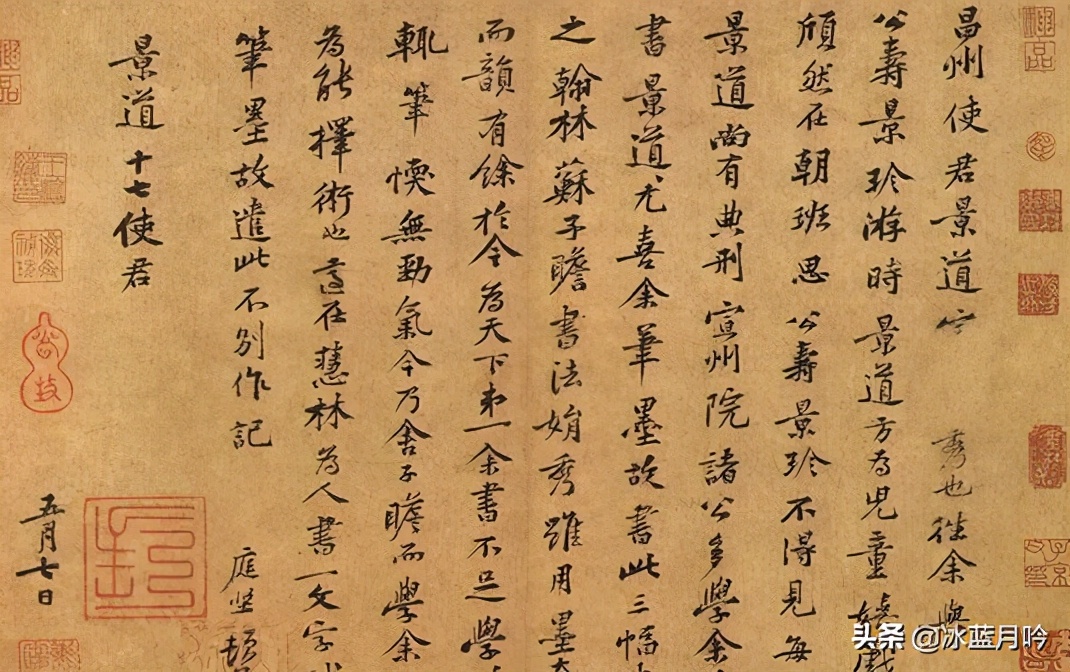 昌州使君景道宗秀也往余與
公壽景珍游時景道方為兒童嬉戲
頎然在朝班思公壽景珍不得見每
景道尚有典刑宣州院諸公多學余
書景道尤喜余筆墨故書此三幅
之翰林蘇子瞻書法娟秀雖用墨
而韻有餘於今為天下第一余書不足學
輒筆愞無勁氣今乃舍子瞻而學余
為能擇術也適在慧林為人書一文字
筆墨故遣此不別作記
庭堅頓
景道十七使君
五月七日
頭条 @冰蓝月吟